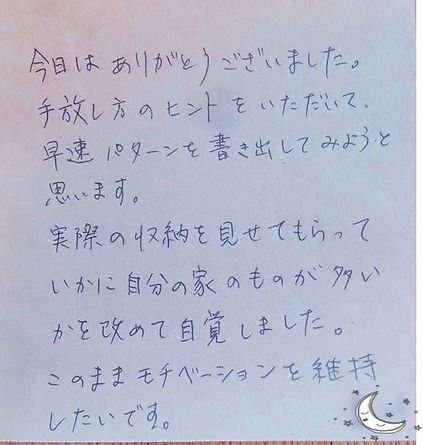 今日はありがとうございました。
手放し方のヒントをいただいて、
早速パターンを書き出してみようと
思います。
実際の収納を見せてもらって
いかに自分の家のものが多い
かを改めて自覚しました。
このままモチベーションを維持
したいです。